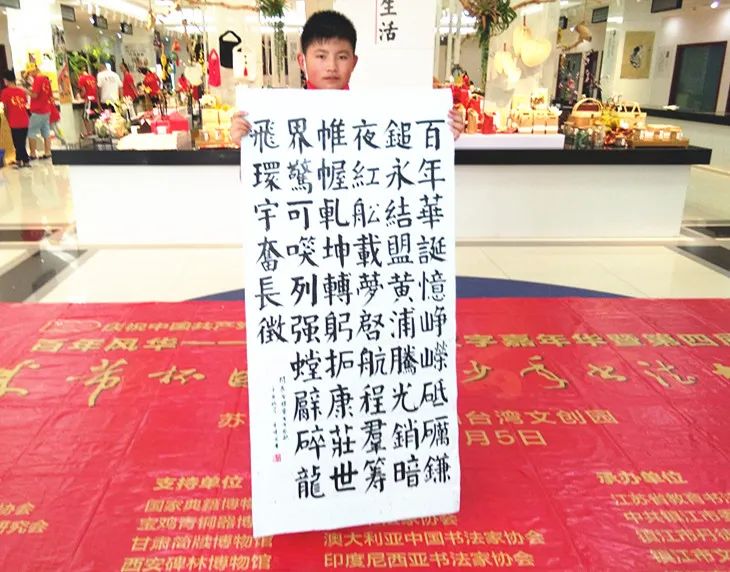 生活
百年華誕憶崢嶸砥礪鎌
鎚永結盟黄浦騰光銷暗
夜紅舩載夢啓航程羣籌
帷幄乾坤轉躬拓康莊世
界驚可嘆列强螳臂碎龍
飛環宇奮長徵
庆祝中国共产党
百年风华—— 字嘉年华暨第四届
杯 少年书法
苏 台湾文创园
月5日
支持单位 承办单位
国家典籍博物 法家协会 江苏省教育书法
研究会 宝鸡青铜器博 法家协会 中共镇江市委
甘肃简牍博物馆 澳大利亚中国书法家协会 镇江市丹徒
西安碑林博物馆 印度尼西亚书法家协会 镇江市文